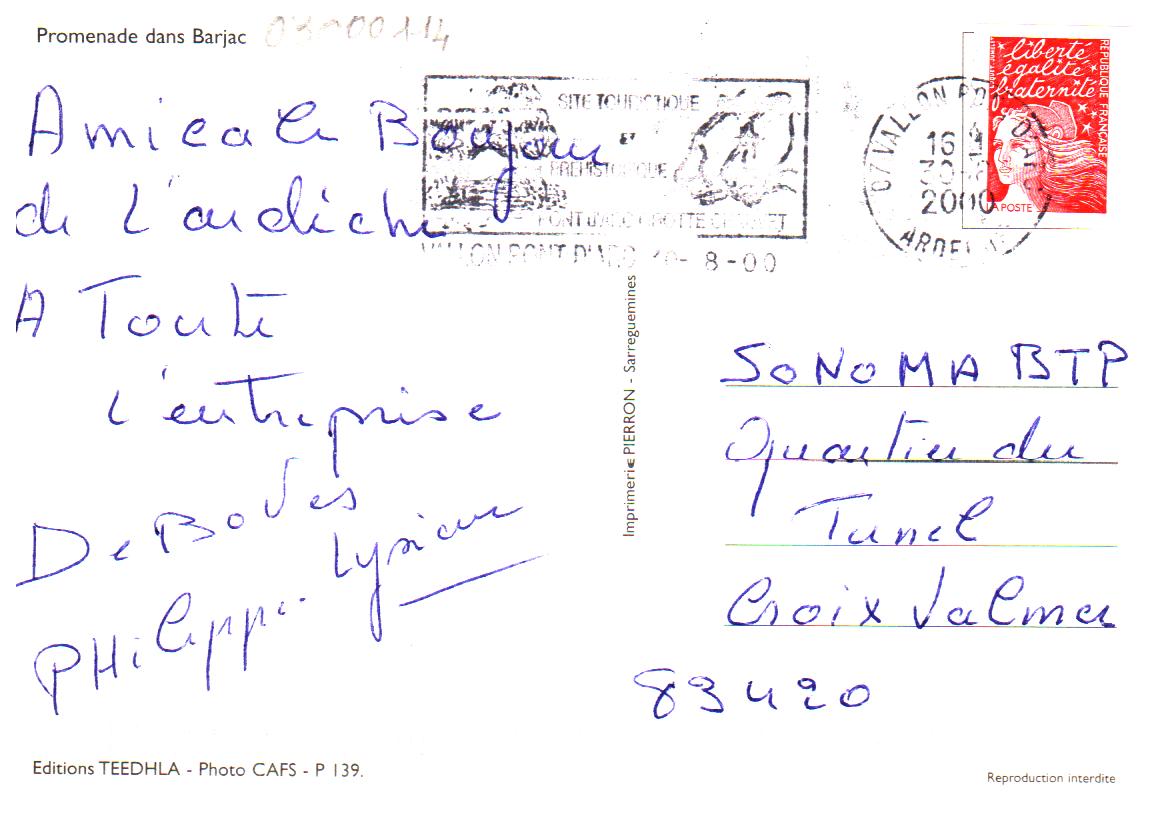 Promenade dans Barjac
03-00114
Amicale Bonjour
de L'ardèche
A Toute
L'entreprise
De Boves
Philippe. Lysiane
SITE TOURISTIQUE
ET
PREHISTORIQUE
PONT D'ARC GROTTE CHAUVET
VALLON PONT D'ARC 30-8-00
07 VALLON PONT D'ARC
16 H
30-8
2000
ARDECHE
liberté
égalité
fraternité
REPUBLIQUE FRANÇAISE
LA POSTE
Imprimerie PIERRON - Sarreguemines
SONOMA BTP
Quartier du
Tunel
Croix Valmer
83420
Editions TEEDHLA - Photo CAFS - P 139.
Reproduction interdite